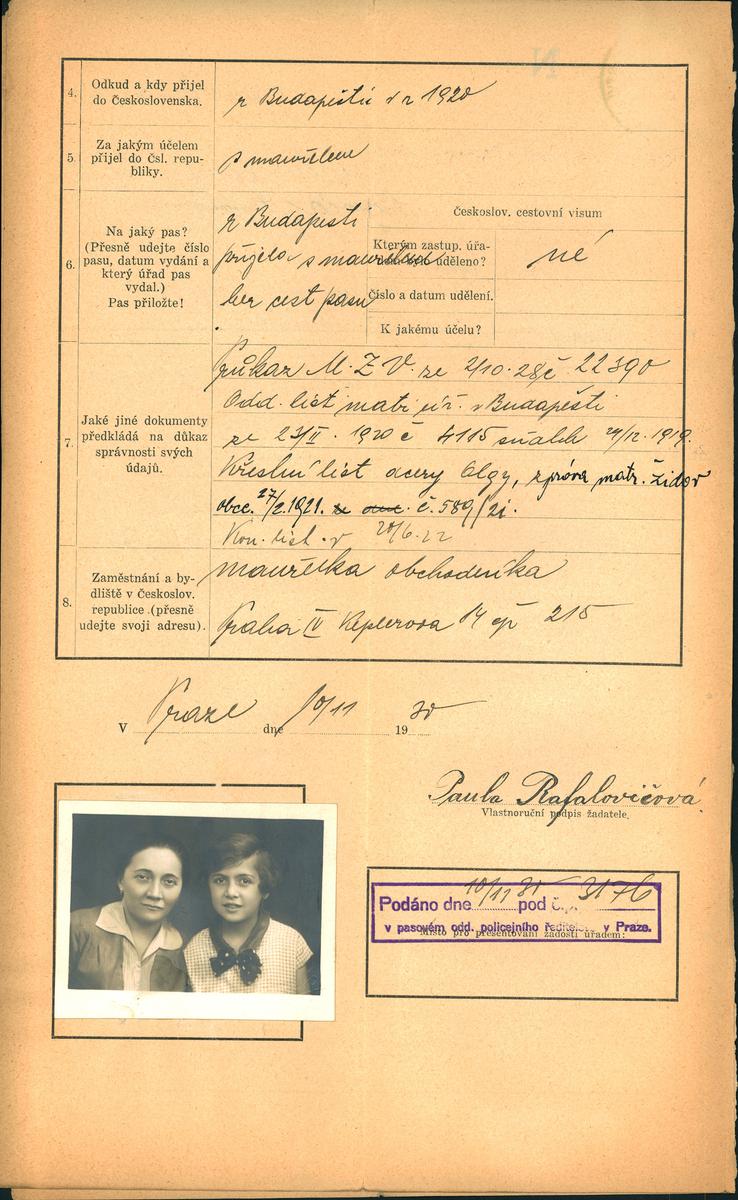 4. Odkud a kdy přijel
do Československa.
z Budapešti v r 1920
5. Za jakým účelem
přijel do čsl. repu-
bliky.
s manželem
6. Na jaký pas?
(Přesně udejte číslo
pasu, datum vydání a
který úřad pas
vydal.)
Pas přiložte!
z Budapešti
přijela s manželem
bez cest pasu
Českoslov. cestovní visum
Kterým zastup. úřa-
uděleno?
né
Číslo a datum udělení.
K jakému účelu?
7. Jaké jiné dokumenty
předkládá na důkaz
správnosti svých
údajů.
Průkaz M. Z. V. ze 2/10. 28 č 22390
Odd. list matr. úř. v Budapešti
ze 23/II. 1920 č 4115 sňatek 24/12. 1919.
Křestní list dcery Olgy, zpráva matr. židov
obce. 27/2. 1921. č. 589/21.
20/6. 22
8. Zaměstnání a by-
dliště v Českoslov.
republice (přesně
udejte svoji adresu).
manželka obchodníka
Praha IV Keplerova 14 čp 215
V Praze dne 10/11 1930
Paula Rafalovičová.
Vlastnoruční podpis žadatele.
Podáno dne 10/11 30 pod č.j. 3176
v pasovém odd. policejního ředitels. v Praze.
Místo pro presentování žádosti úřadem: